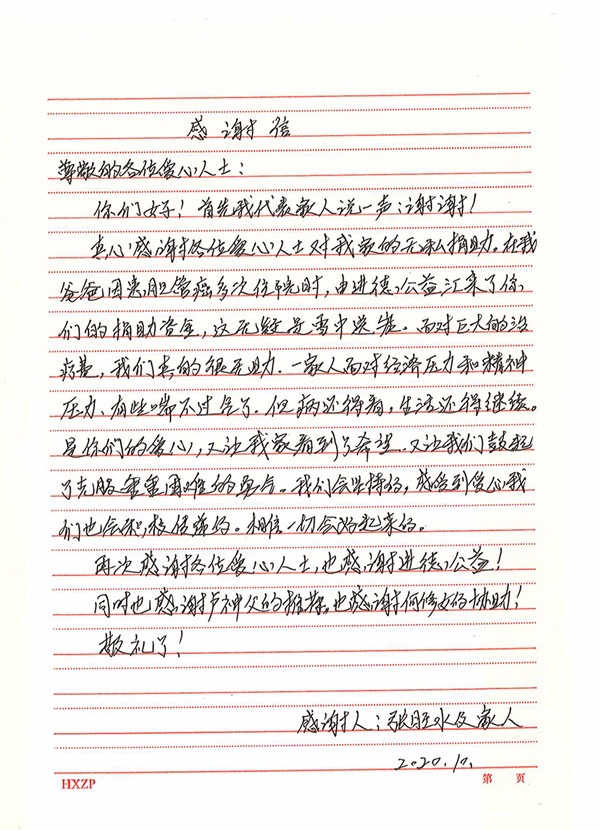 感谢信
尊敬的各位爱心人士：
你们好！首先我代表家人说一声：谢谢！
真心感谢各位爱心人士对我家的无私捐助。在我
爸爸因患胆管癌多次住院时，由进德公益汇来了你
们的捐助资金，这无疑是雪中送炭。面对巨大的治
疗费，我们真的很无助。一家人面对经济压力和精神
压力、有些喘不过气了。但病还得看，生活还得继续。
是你们的爱心，又让我家看到了希望、又让我们鼓起
了克服重重困难的勇气。我们会坚持的，感受到爱心我
们也会积极传递的。相信一切会好起来的。
再次感谢各位爱心人士，也感谢进德公益！
同时也感谢卢神父的推荐，也感谢何修女的协助！
敬礼了！
感谢人：张旺水及家人
2020.10.
HXZP 第 页